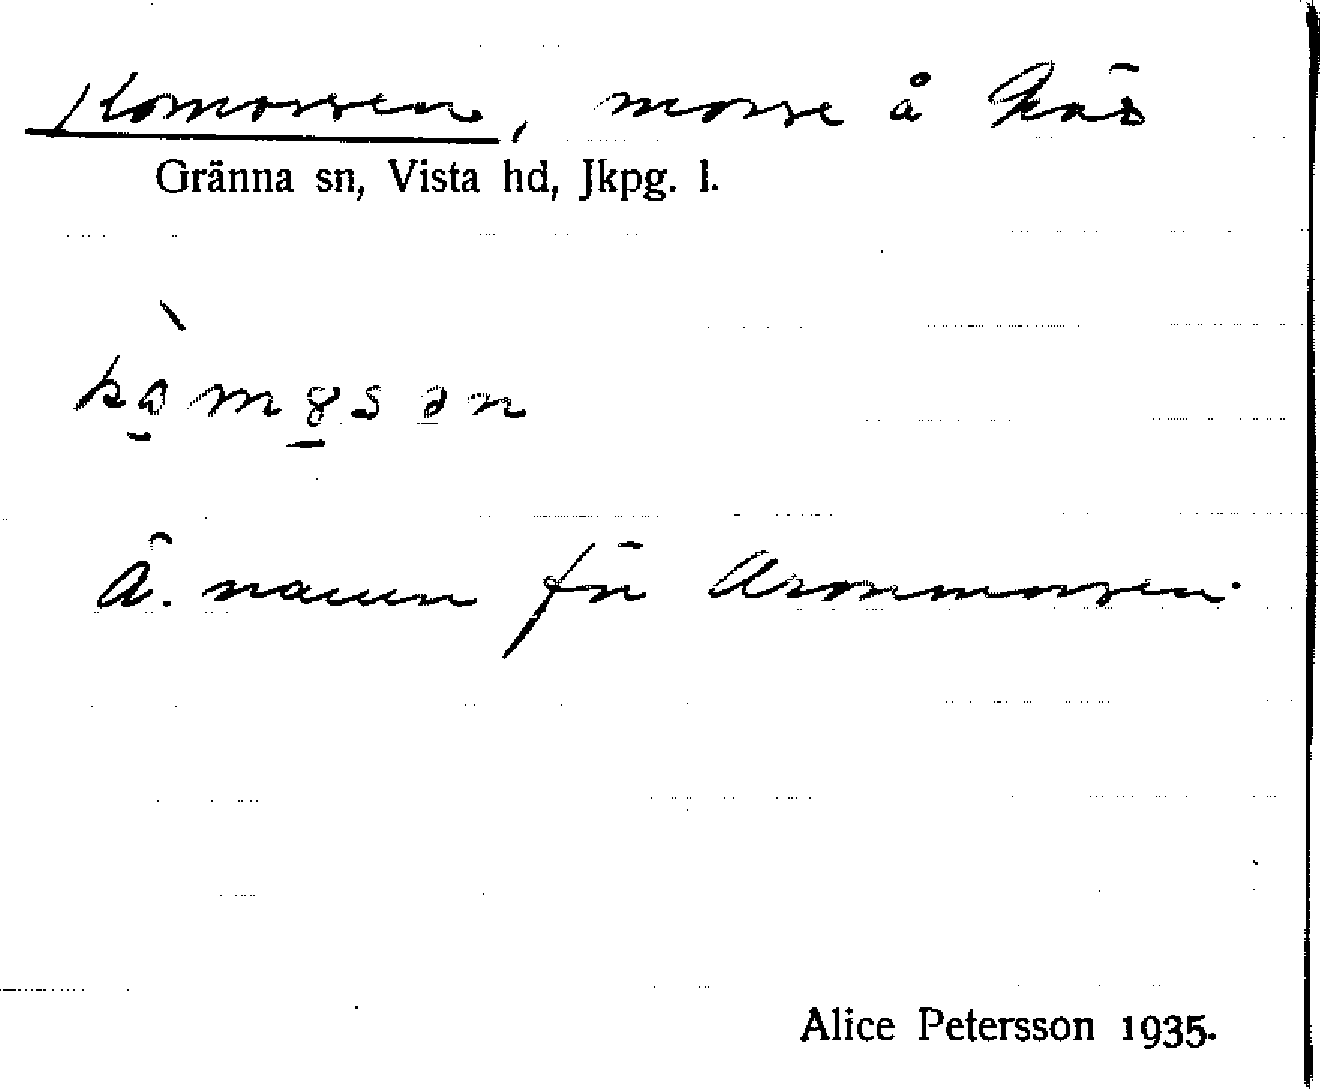 Komossen, mosse å
Gränna sn, Vista hd, Jkpg. l.
Ä. namn för Aronmossen.
Alice Petersson 1935.